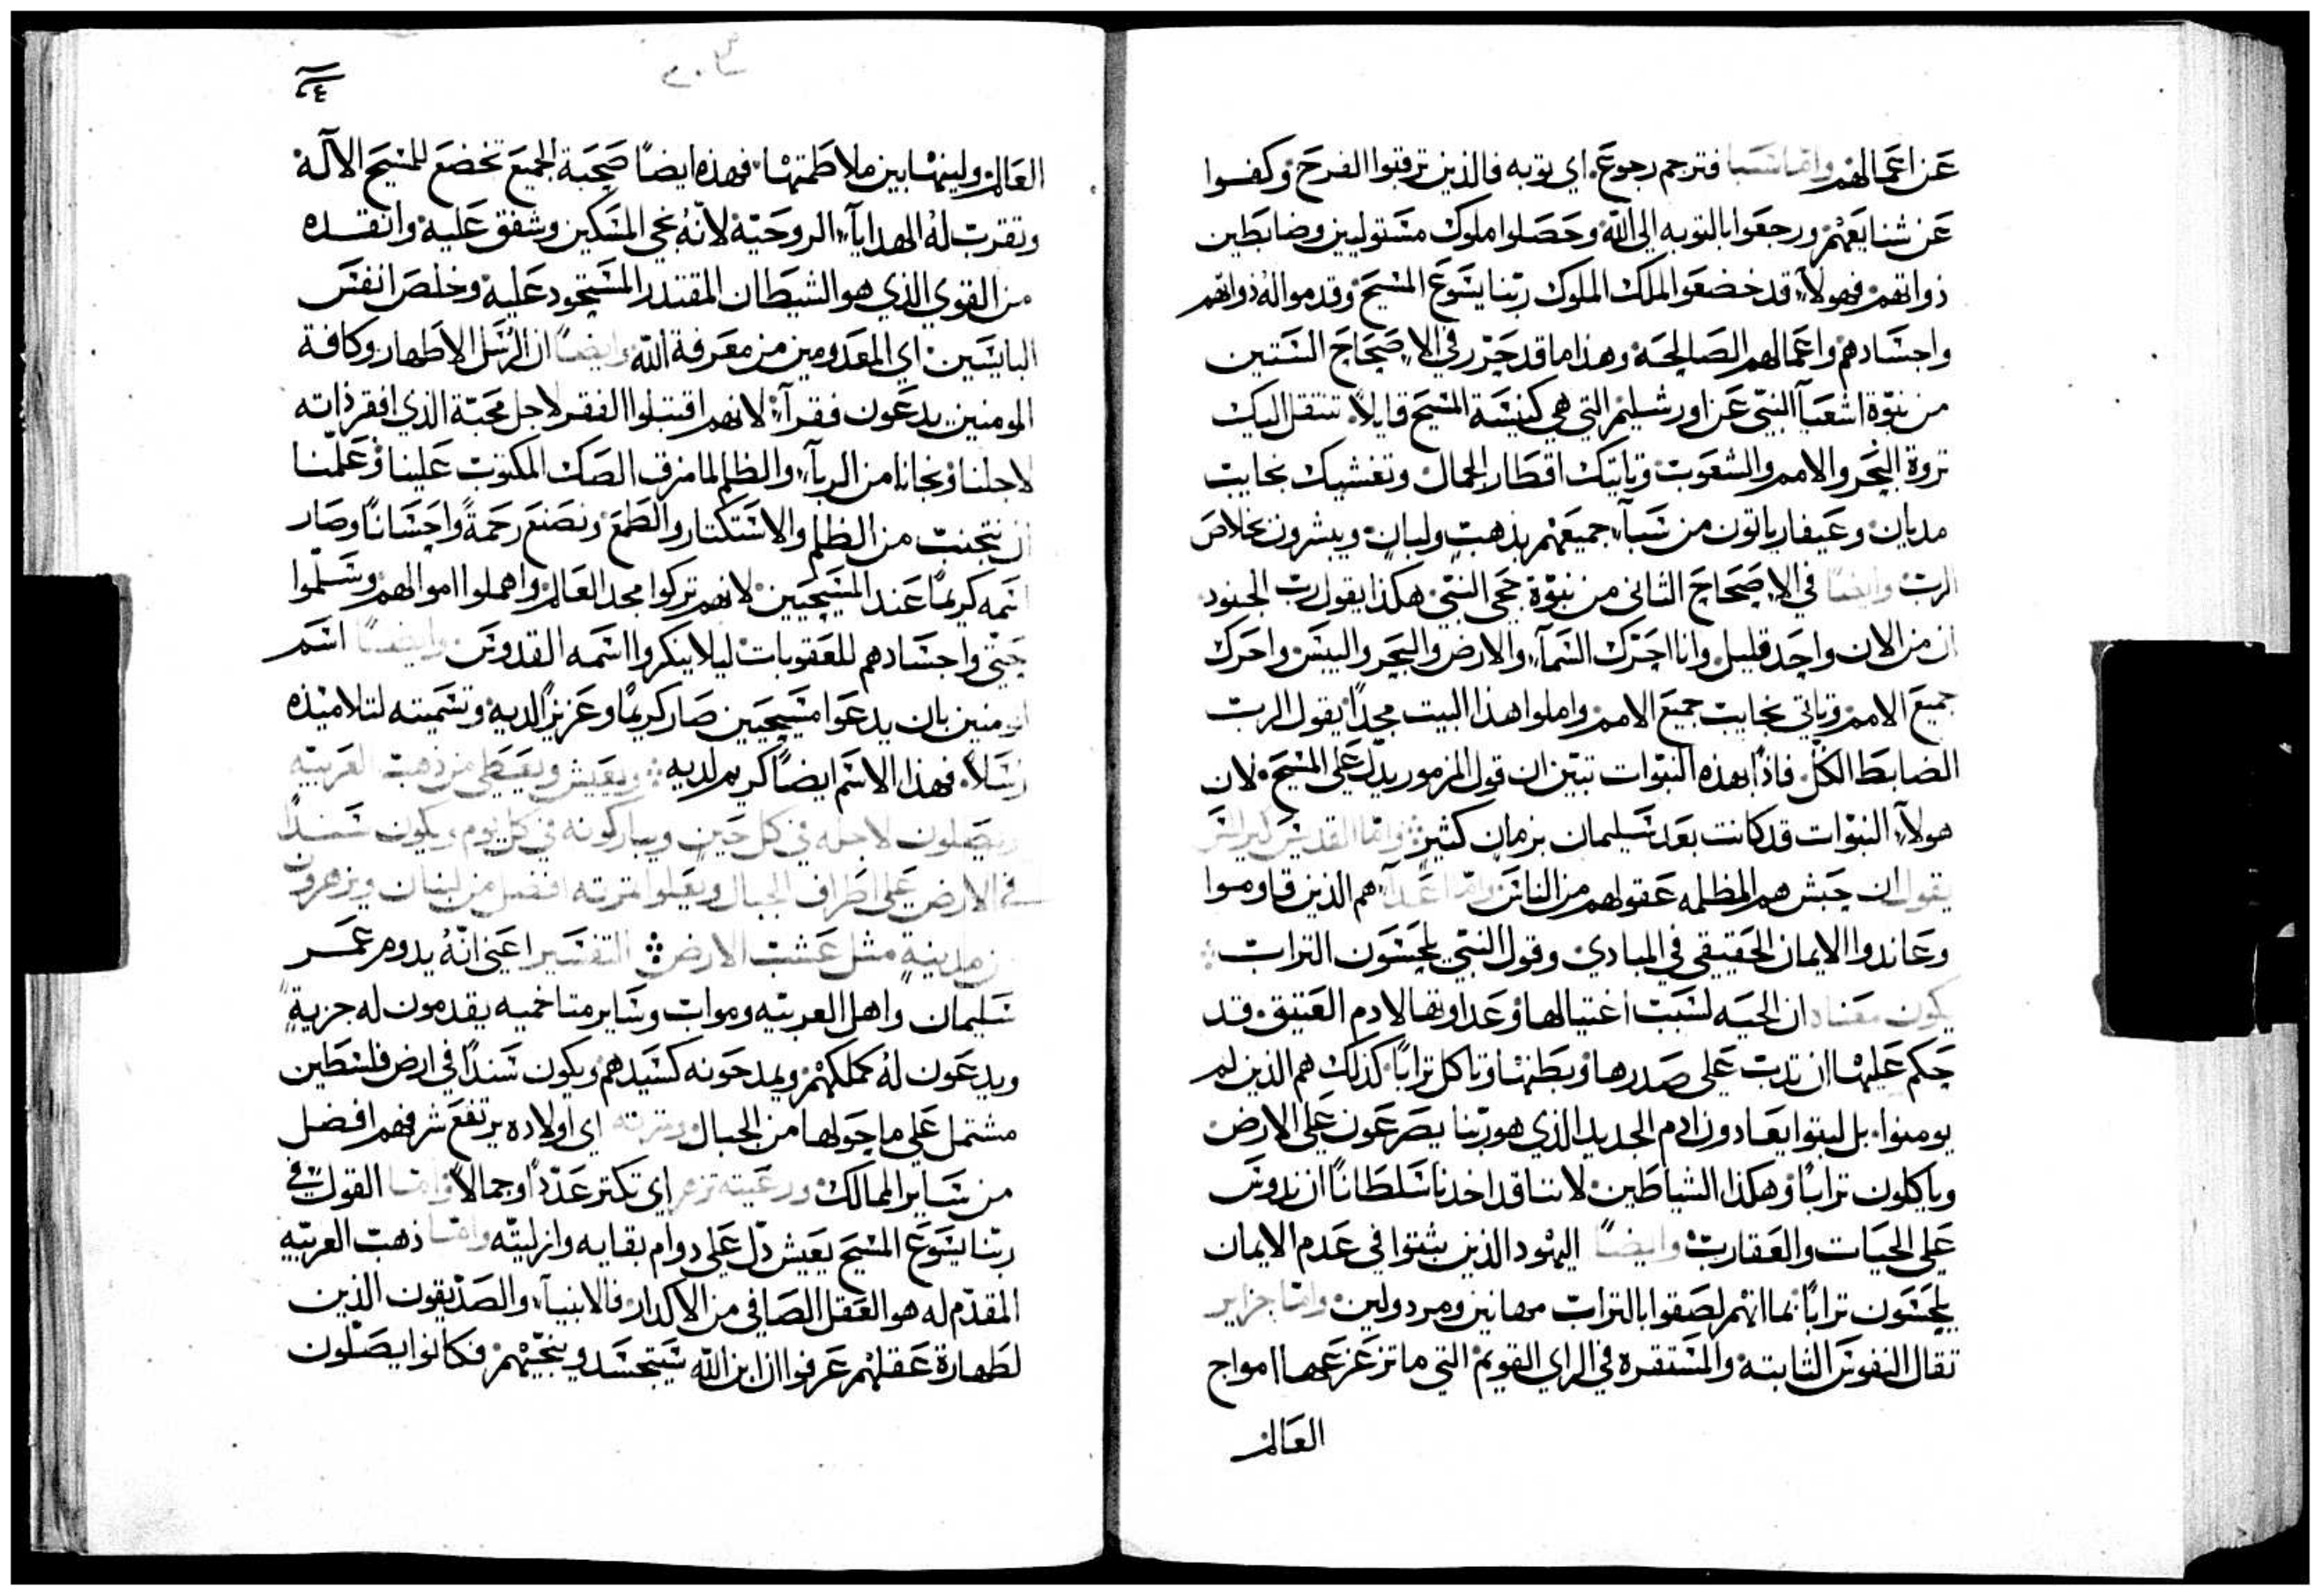 عن اعمالهم واما سبا فترجم رجوع اي توبه فالذين ترقبوا الفرح وكفوا
عن شنايعهم ورجعوا بالتوبه الى الله وحصلوا ملوك مستوليين وضابطين
ذواتهم فهولآء قد خضعوا الملك الملوك ربنا يسوع المسيح وقدموا له ذواتهم
واجسادهم واعمالهم الصالحه وهذا ما قد حرر في الاصحاح الستين
من نبوة اشعيآ النبي عن اورشليم التي هي كنيسة المسيح قايلاً تنتقل اليك
ثروة البحر والامم والشعوب وتاتيك اقطار الجمال وتغشيك نجايب
مديان وعيفا رياتون من سبآء جميعهم بذهب ولبان ويبشرون بخلاص
الرب وايضاً في الاصحاح الثاني من نبوة حجى النبي هكذا يقول رب الجنود
ان من الان واحد قليل وانا احرك السمآء والارض والبحر واليبس واحرك
جميع الامم وتاتي نجايب جميع الامم واملوا هذا البيت مجداً يقول الرب
الضابط الكل فاذاً بهذه النبوات تبين ان قول المزمور يدل على المسيح لان
هولآء النبوات قد كانت بعد سليمان بزمان كثير واما القديس كيرلس
يقول ان حبش هم المظلمه عقولهم من الناس واما اعدآه هم الذين قاوموا
وعاندوا الايمان الحقيقي في المبادي وقول النبي يلحسون التراب
يكون معناه ان الحيه لسبب اغتيالها وعداوتها لادم العتيق قد
حكم عليها ان تدب على صدرها وبطنها وتاكل تراباً كذلك هم الذين لم
يومنوا بل لبثوا يعادون ادم الجديد الذي هو ربنا يصرعون على الارض
وياكلون تراباً وهكذا الشياطين لاننا قد اخدنا سلطاناً ان ندوس
على الحيات والعقارب وايضاً اليهود الذين يثبتوا في عدم الايمان
يلحسون تراباً بما انهم لصقوا بالتراب مهانين ومردولين واما جزاير
تقال النفوس الثابته والمستقره في الراي القويم التي ما تزعزعها امواج
العالم
العالم ولينها بين ملاطمتها فهذه ايضاً صحبة الجميع تخضع للمسيح الآله
وتقرب له الهدايآء الروحيه لانهُ نجى المسكين وشفق عليه وانقده
من القوي الذي هو الشيطان المقتدر المستحود عليه وخلص انفس
البايسين اي المعدومين من معرفة الله وايضاً ان الرسل الاطهار وكافة
المومنين يدعون فقرآء لانهم اقتبلوا الفقر لاجل محبة الذي افقر ذاته
لاجلنا ونجانا من الربآء والظلم لما مزق الصك المكتوب علينا وعلمنا
ان نتجنب من الظلم والاستكتار والطمع ونصنع رحمةً واحساناً وصار
اسمه كريماً عند المسيحيين لانهم تركوا مجد العالم واهملوا اموالهم وسلموا
حتى واجسادهم للعقوبات ليلا ينكروا اسمه القدوس وايضاً اسم
المومنين بان يدعوا مسيحيين صار كريماً وعزيزاً لديه وتسميته لتلاميذه
رسلاً فهذا الاسم ايضاً كريم لديه ويعيش ويعطى من ذهب العربيه
ويصلون لاجله في كل حين ويباركونه في كل يوم ويكون سنداً
في الارض على اطراف الجبال ويعلوا ثمرته افضل من لبنان ويزهرون
من مدينةٍ مثل عشب الارض التفسير اعني انهُ يدوم عمر
سليمان واهل العربيه وموات وساير متاخميه يقدمون له جزيةٍ
ويدعون لهُ كملكهم ويمدحونه كسيدهم ويكون سنداً في ارض فلسطين
مشتمل على ما حولها من الجبال وثمرته اي اولاده يرتفع شرفهم افضل
من ساير الممالك ورعيته تزهر اي تكتر عدداً وجمالاً واما القول في
ربنا يسوع المسيح يعيش دل على دوام بقايه وازليته واما ذهب العربيه
المقدم له هو العقل الصافي من الاكدار فالانبيآء والصديقون الذين
لطهارة عقلهم عرفوا ان ابن الله سيتجسد وينجيهم فكانوا يصلون